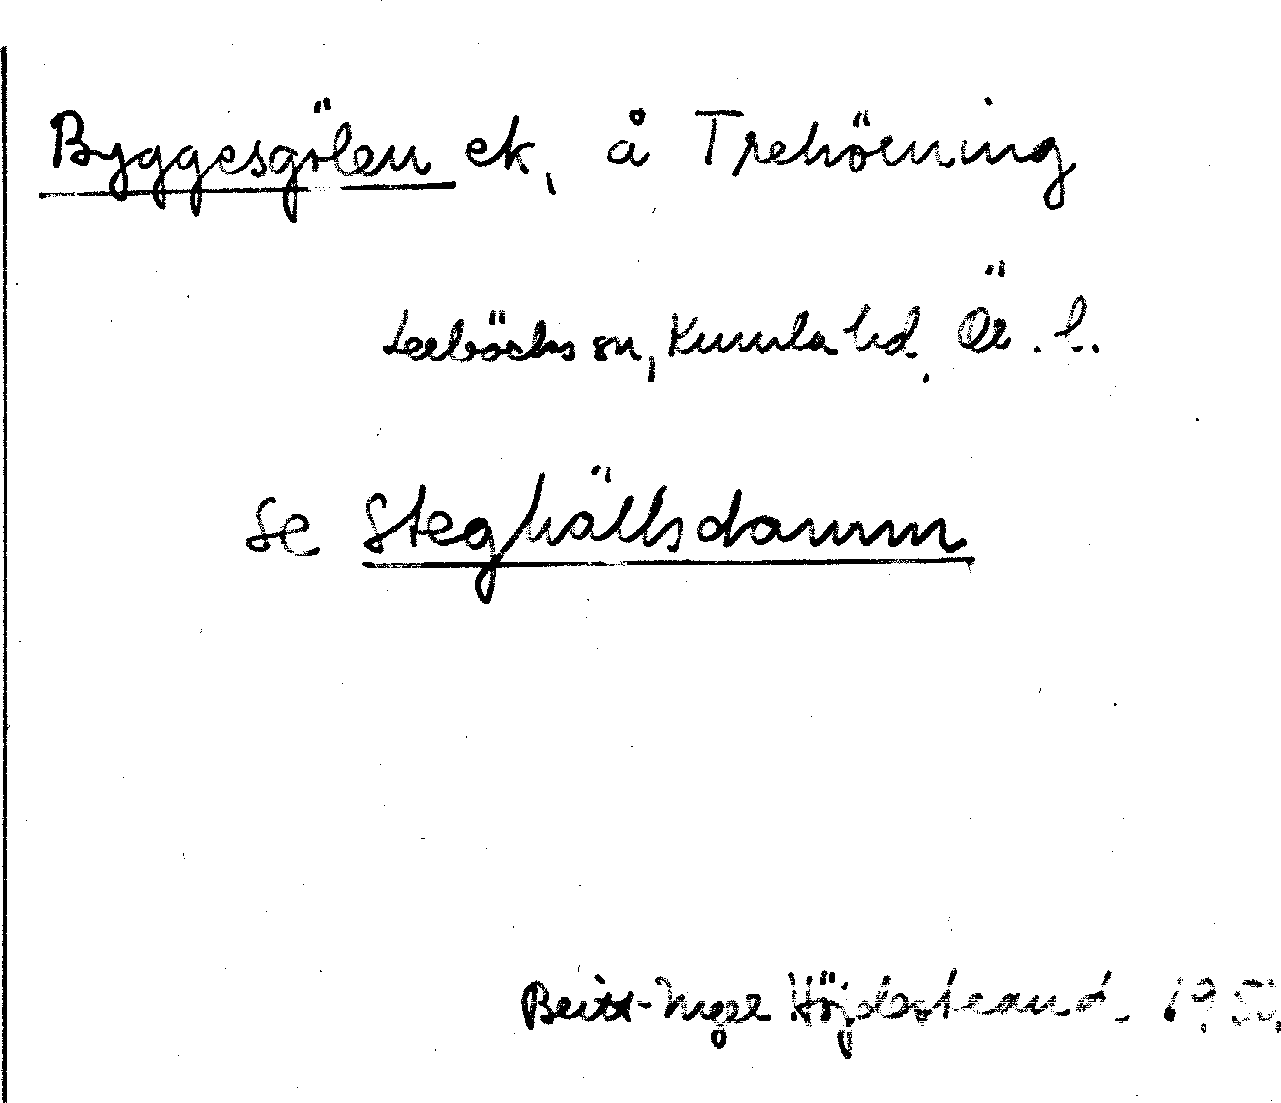 Byggesgölen ek, å Trehörning
Lerbäcks sn, Kumla hd. Ör. l.
se Steghällsdamm
Britt-Inger Höjdestrand